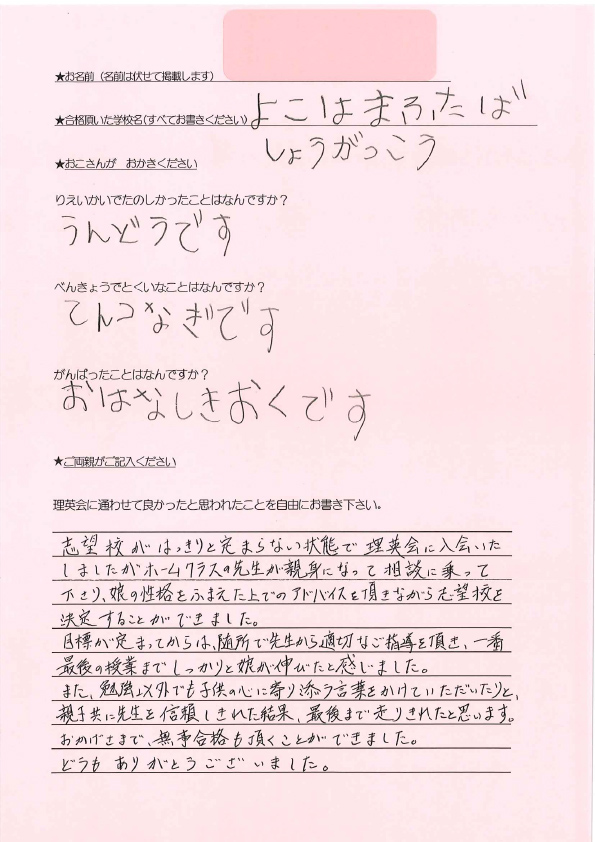 ★お名前（名前は伏せて掲載します）
★合格頂いた学校名(すべてお書きください) よこはまふたば
しょうがっこう
★おこさんが おかきください
りえいかいでたのしかったことはなんですか？
うんどうです
べんきょうでとくいなことはなんですか？
てんつなぎです
がんばったことはなんですか？
おはなしきおくです
★ご両親がご記入ください
理英会に通わせて良かったと思われたことを自由にお書き下さい。
志望校がはっきりと定まらない状態で理英会に入会いた
しましたがホームクラスの先生が親身になって相談に乗って
下さり、娘の性格をふまえた上でのアドバイスを頂きながら志望校を
決定することができました。
目標が定まってからは、随所で先生から適切なご指導を頂き、一番
最後の授業までしっかりと娘が伸びたと感じました。
また、勉強以外でも子供の心に寄り添う言葉をかけていただいたりと、
親子共に先生を信頼しきれた結果、最後まで走りきれたと思います。
おかげさまで、無事合格も頂くことができました。
どうもありがとうございました。